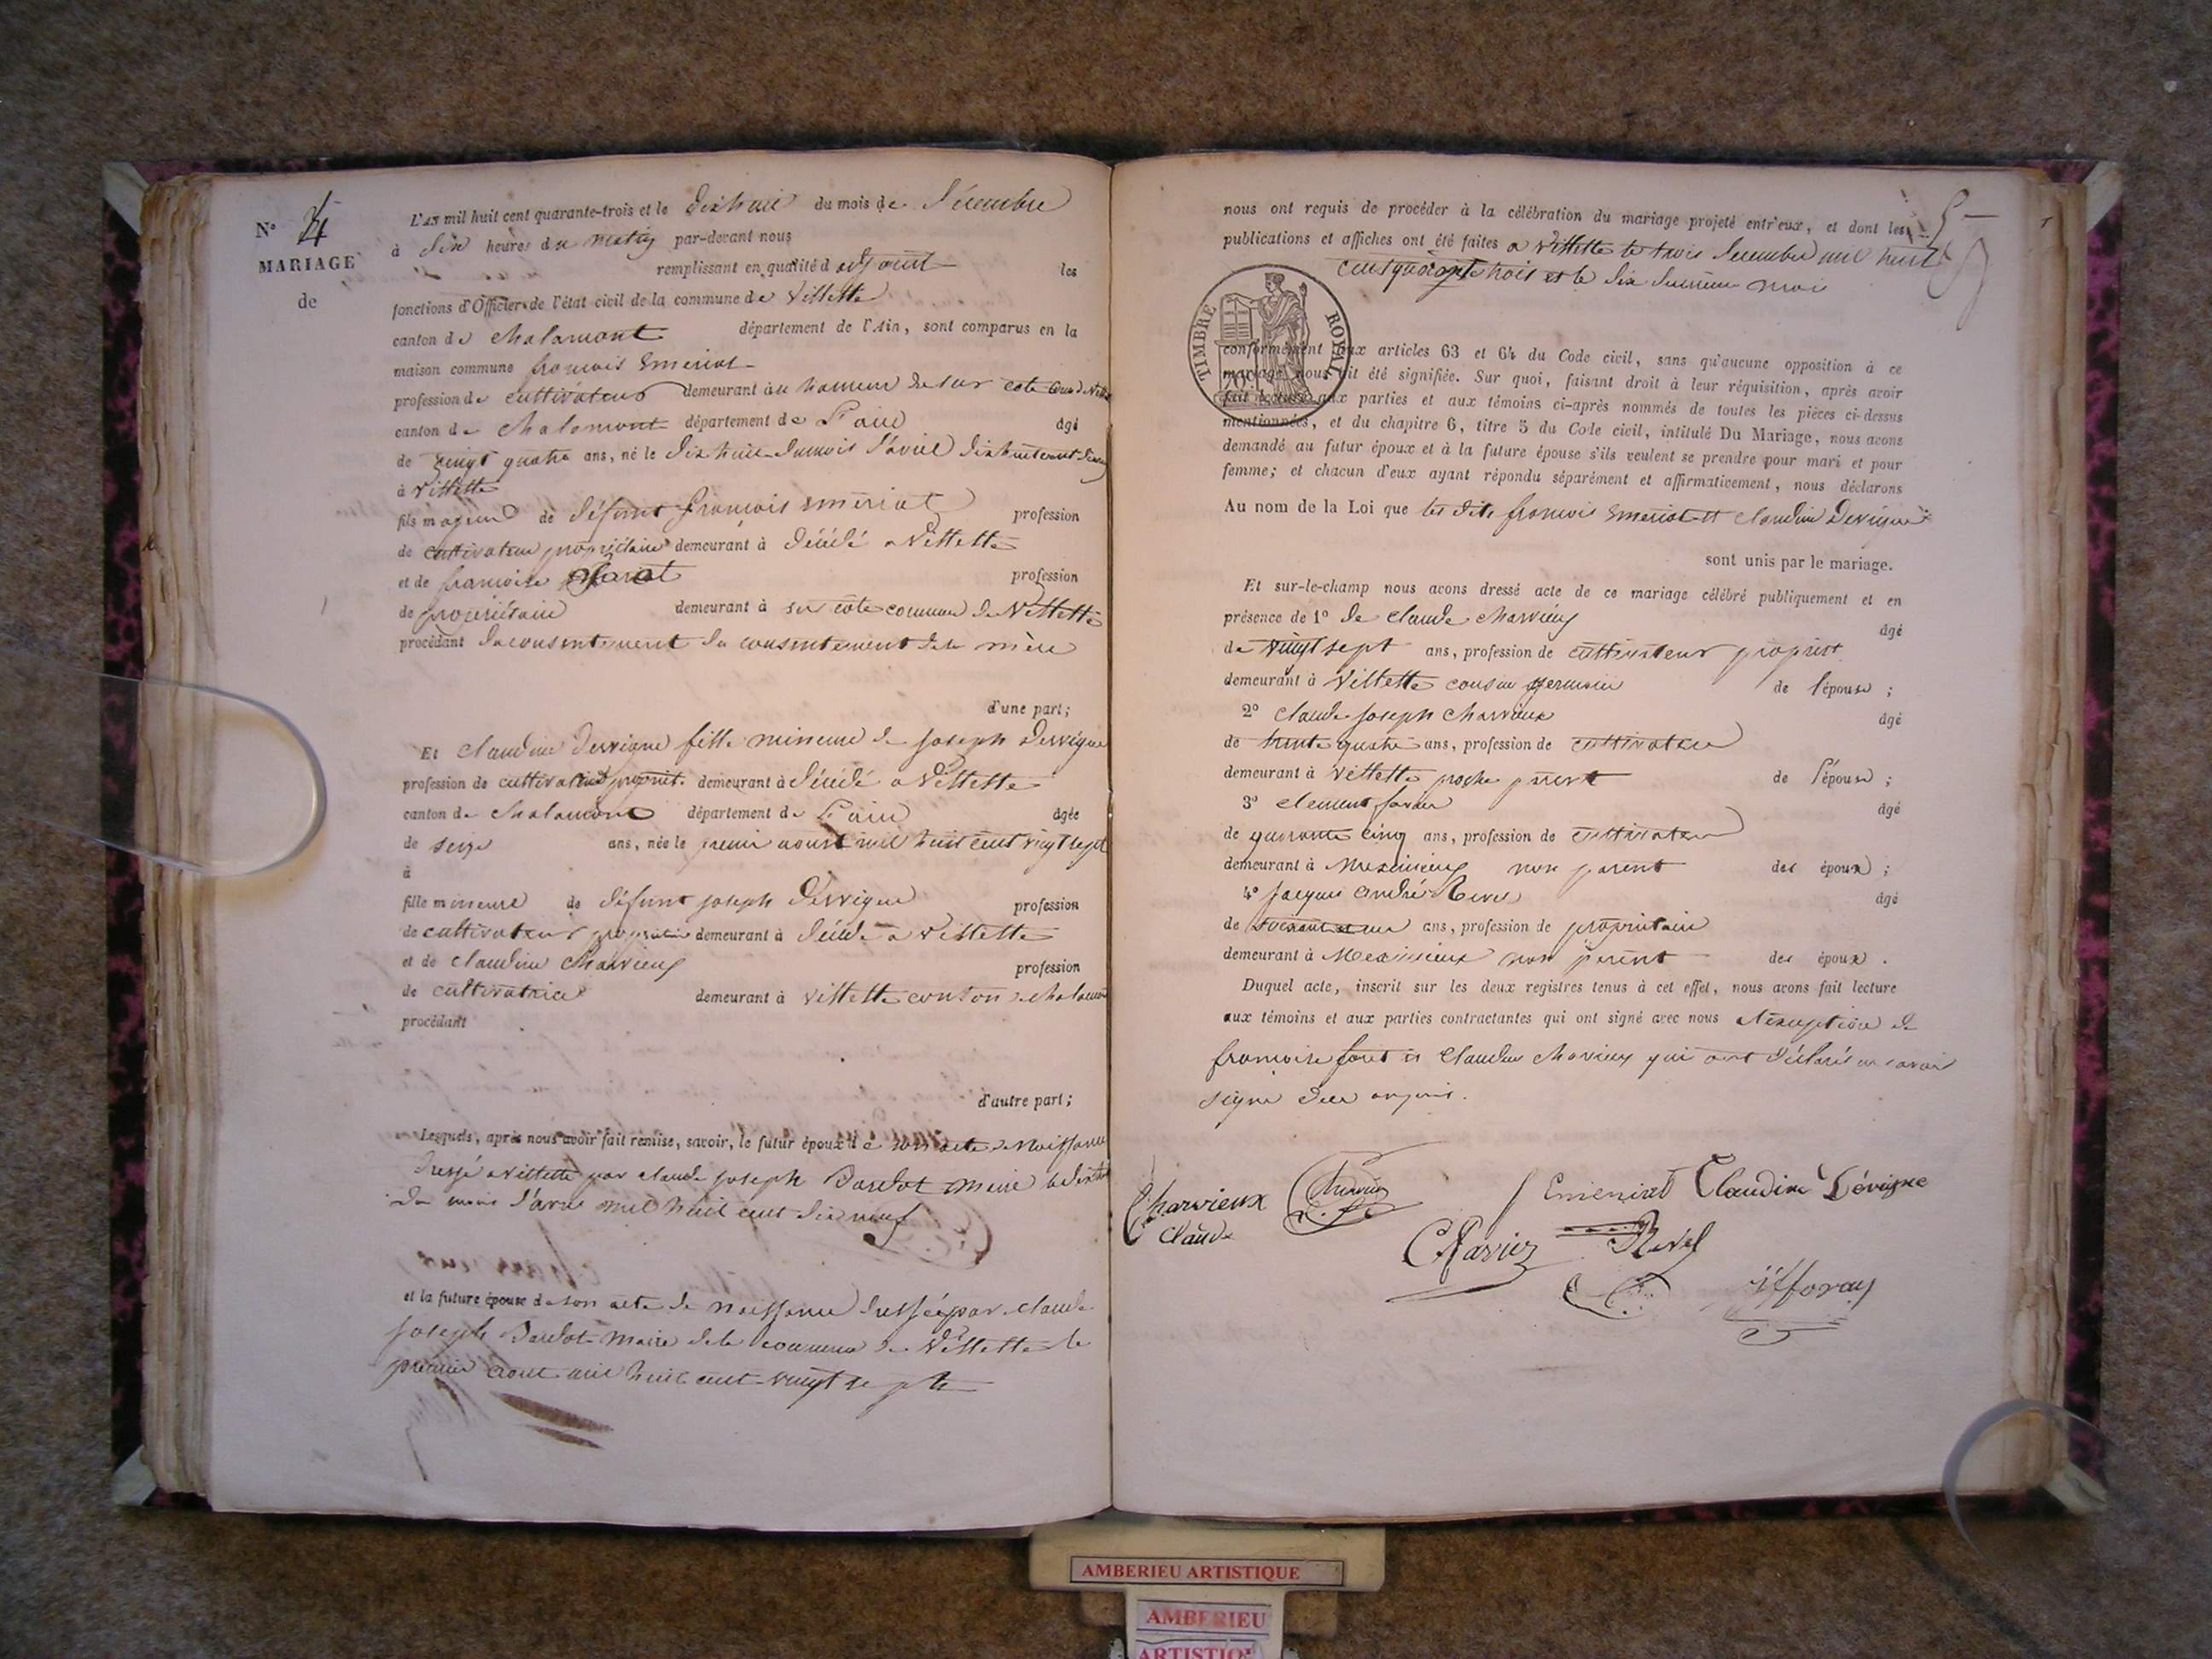 N° 4
MARIAGE
de
L'AN mil huit cent quarante-trois et le dixhuit du mois de Décembre
à dix heures du matin par-devant nous
remplissant en qualité d adjoint les
fonctions d'Officier de l'état civil de la commune de Villette
canton de chalamont département de l'Ain, sont comparus en la
maison commune francois Emeriat
profession de cultivateur demeurant au hameau de sur cote
canton de Chalamont département de L'ain âgé
de vingt quatre ans, né le dix huit du mois d'avril
à Villette
fils majeur de défunt francois emeriat profession
de cultivateur propriétaire demeurant à décédé a Villette
et de francoise profession
de propriétaire demeurant à sur cote commune de Villette
procédant du consentement du consentement de la mère
d'une part;
Et claudine Dervigne fille mineure de joseph Dervigne
profession de cultivateur propriét. demeurant à décédé a Villette
canton de Chalamont département de L'ain âgée
de seize ans, née le premier aoust mil huit cent vingt sept
à
fille mineure de défunt joseph Dervigne profession
de cultivateur propriétaire demeurant à décédé a Villette
et de claudine Charvieux profession
de cultivatrice demeurant à villette canton de chalamont
procédant
d'autre part;
Lesquels, après nous avoir fait remise, savoir, le futur époux de son acte de Naissance
dressé a villette par claude joseph Bardot maire le dixhuit
du mois d'avril mil huit cent dix neuf
et la future épouse de son acte de naissance dressé par claude
joseph Bardot maire de la commune de Villette le
premier aout mil huit cent vingt sept
nous ont requis de procéder à la célébration du mariage projeté entr'eux, et dont les
publications et affiches ont été faites a Villette le trois decembre mil huit
cent quarante trois et le dix du même mois
TIMBRE ROYAL
conformément aux articles 63 et 64 du Code civil, sans qu'aucune opposition à ce
mariage nous ait été signifiée. Sur quoi, faisant droit à leur réquisition, après avoir
fait lecture aux parties et aux témoins ci-après nommés de toutes les pièces ci-dessus
mentionnées, et du chapitre 6, titre 5 du Code civil, intitulé Du Mariage, nous avons
demandé au futur époux et à la future épouse s'ils veulent se prendre pour mari et pour
femme; et chacun d'eux ayant répondu séparément et affirmativement, nous déclarons
Au nom de la Loi que les dits francois Emeriat et claudine Dervigne
sont unis par le mariage.
Et sur-le-champ nous avons dressé acte de ce mariage célébré publiquement et en
présence de 1° de claude charvieux âgé
de vingt sept ans, profession de cultivateur propriét
demeurant à Villette cousin germain de l'épouse ;
2° claude joseph charvieux âgé
de trente quatre ans, profession de cultivateur
demeurant à Villette proche parent de l'épouse ;
3° clement favier âgé
de quarante cinq ans, profession de cultivateur
demeurant à Meximieux non parent des époux ;
4° jacques andré Revel âgé
de ans, profession de propriétaire
demeurant à Meximieux non parent des époux .
Duquel acte, inscrit sur les deux registres tenus à cet effet, nous avons fait lecture
aux témoins et aux parties contractantes qui ont signé avec nous a l'exception de
francoise et claudine charvieux qui ont déclaré ne savoir
signer
Charvieux
Claude
Emeriat Claudine Dévigne
C Favier Revel
AMBERIEU ARTISTIQUE
AMBERIEU
ARTISTIQUE